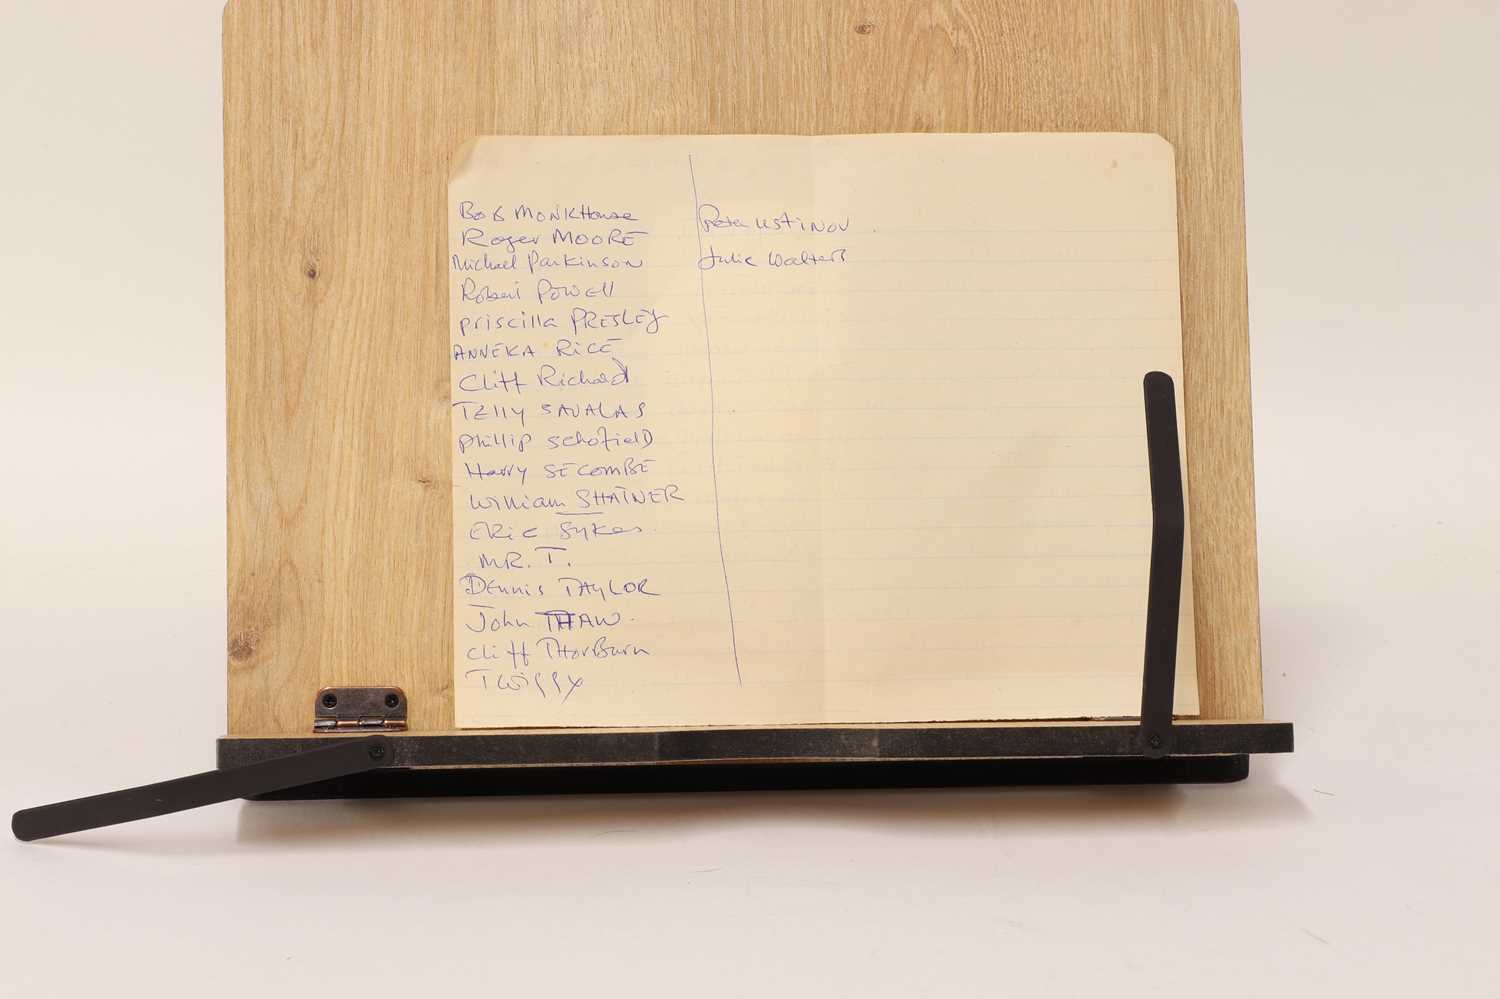 Bob MONKHouse
Roger MOORE
Michael Parkinson
Robert Powell
priscilla PRESLEY
ANNEKA RICE
Cliff Richard
TElly SAVALAS
phillip schofielD
Harry SECOMBE
William SHATNER
ERic Sykes.
MR. T.
Dennis TAYLOR
John THAW.
cliff THorBurn
Twiggy
Peter USTINOV.
Julie Walters